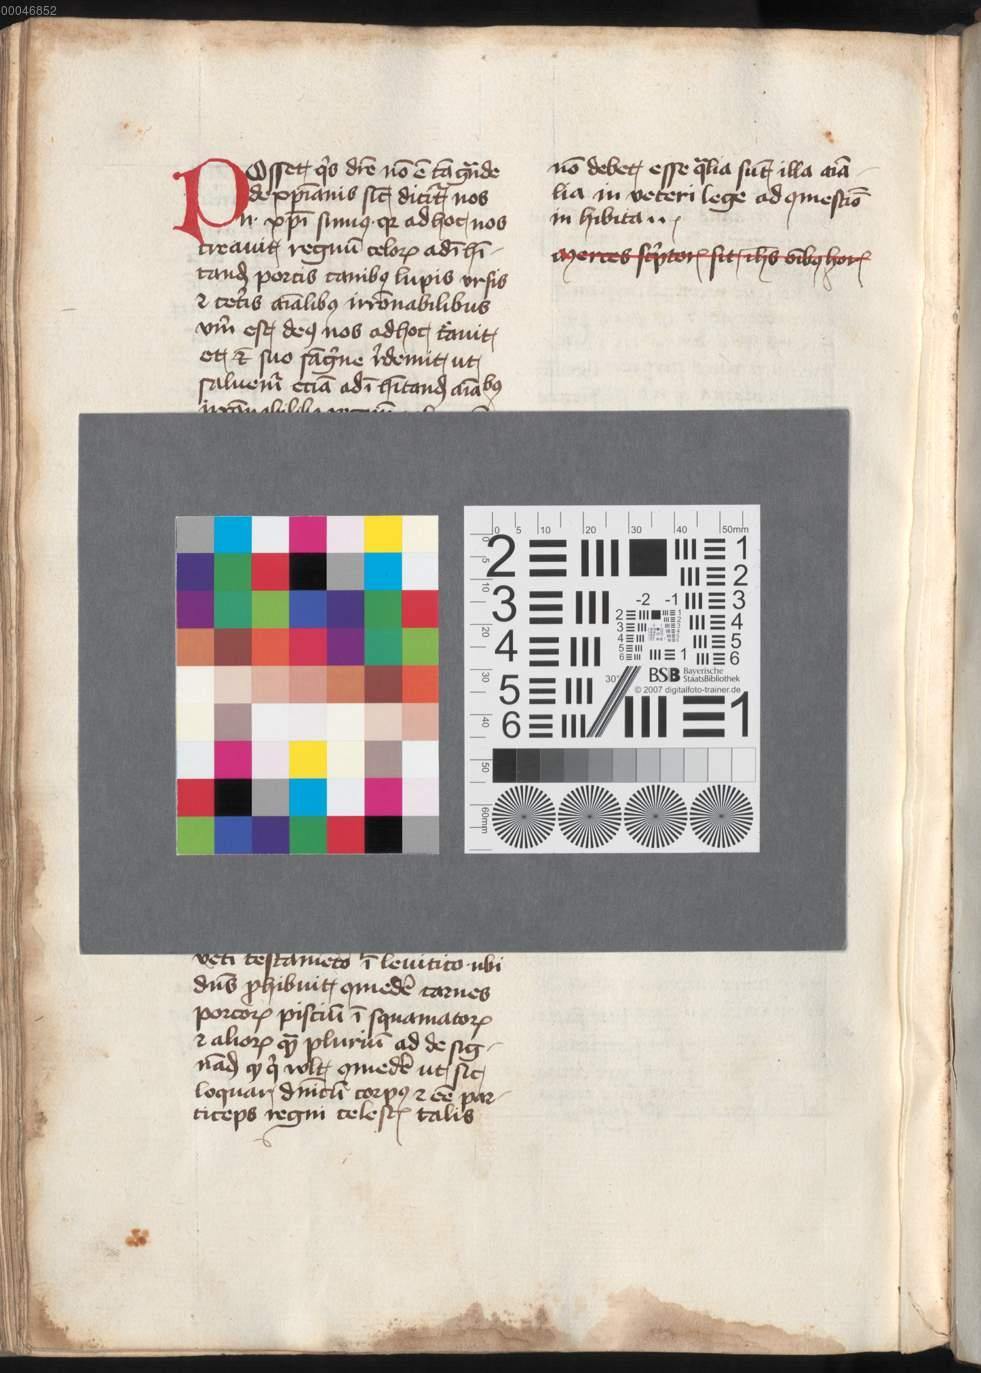 00046852
Posset q̄s dr̄e nō ē tā grāde
de xp̄ianis sic dicit̄ nos
xp̄i sumꝰ qr ad hoc nos
creauit regnū celoꝝ ad īhi-
tand porcis canibꝰ lupis vrsis
⁊ cet̄is aīalibꝰ irrōnabilibus
vm̄ est deꝰ nos ad hoc c̄auit
et suo sāgͥne r̄demit ut
saluem̄ eciā ad ī hītand aīabꝰ
nō debet esse q̄lia sūt illa aīa-
lia in veteri lege ad qmestiō
in hibita
Merces sc̄ptoꝝ sit ih̄s oībꝫ horꝭ
veti testamēto ī leuitico ubi
dn̄s ꝓhibuit qmedē carnes
porcoꝝ pisciū ī squamatoꝝ
⁊ alioꝝ qꝫ pluriū ad desig-
nād qꝫ q̄ wlt qmedē ut sic
loquar dn̄icū corpꝰ ⁊ eē par-
ticeps regni celestꝭ talis
0 5 10 20 30 40 50mm
0 5 10 20 30 40 50 60mm
2 3 4 5 6
1 2 3 4 5 6
-2 -1
2 3 4 5 6
1
30°
BSB Bayerische
StaatsBibliothek
© 2007 digitalfoto-trainer.de
1